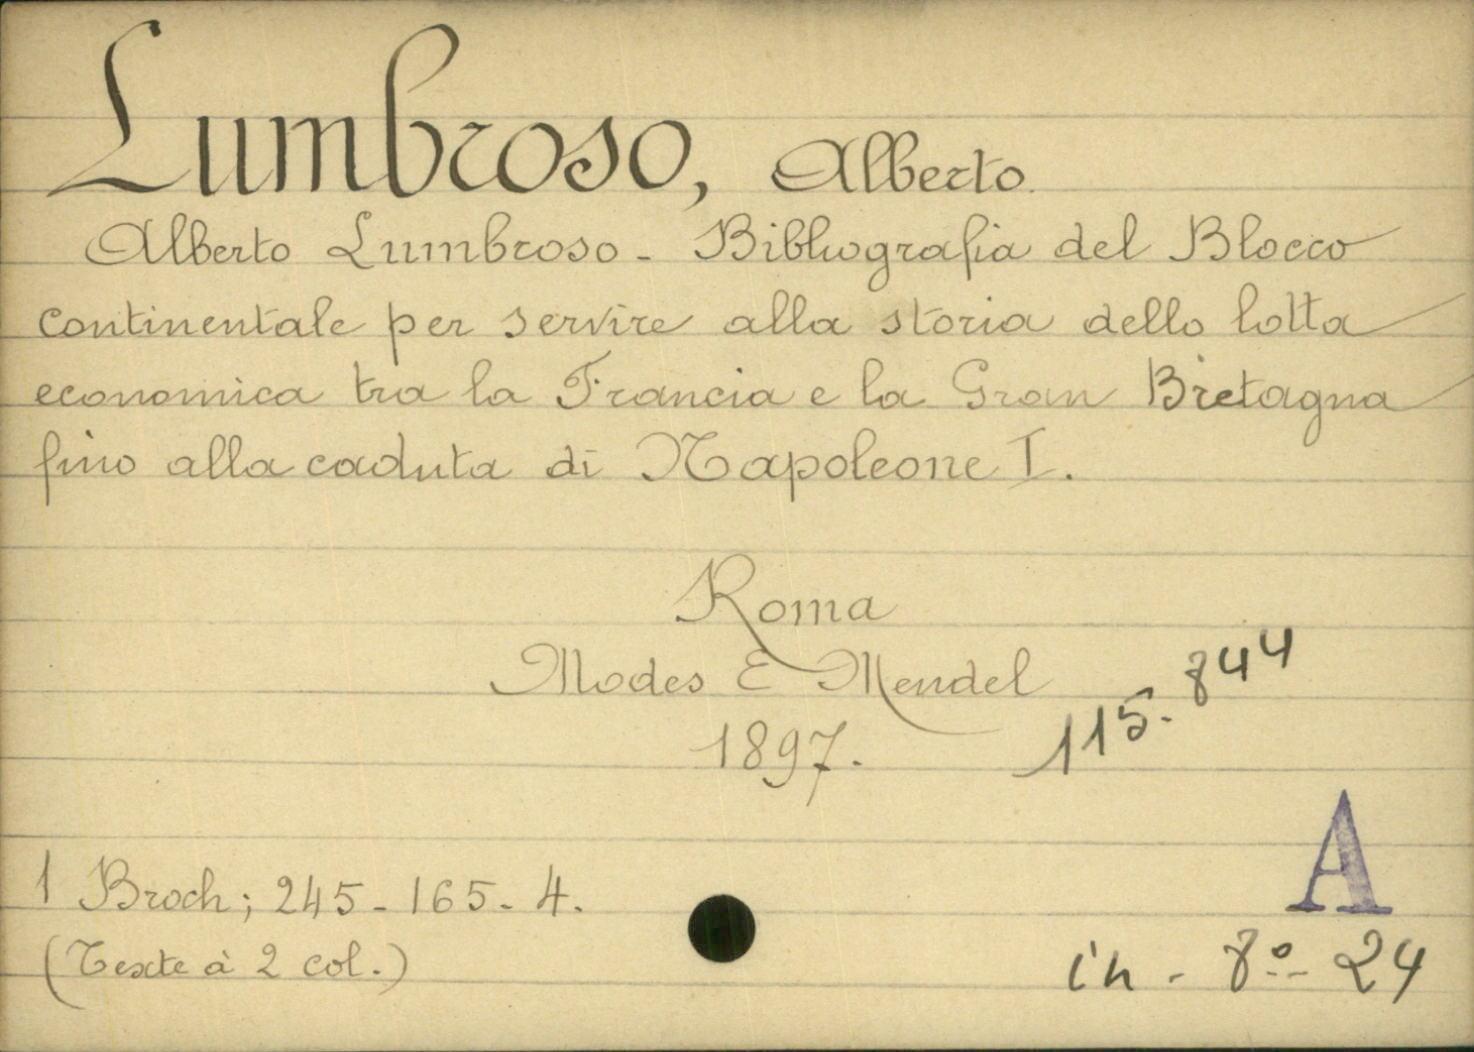 Lumbroso, Alberto.
Alberto Lumbroso - Bibliografia del Blocco
continentale per servire alla storia dello lotta
economica tra la Francia e la Gran Bretagna
fino alla caduta di Napoleone I.
Roma
Modes E Mendel
1897.
115.844
1 Broch; 245-165-4.
(Texte à 2 col.)
A
in-8º-24